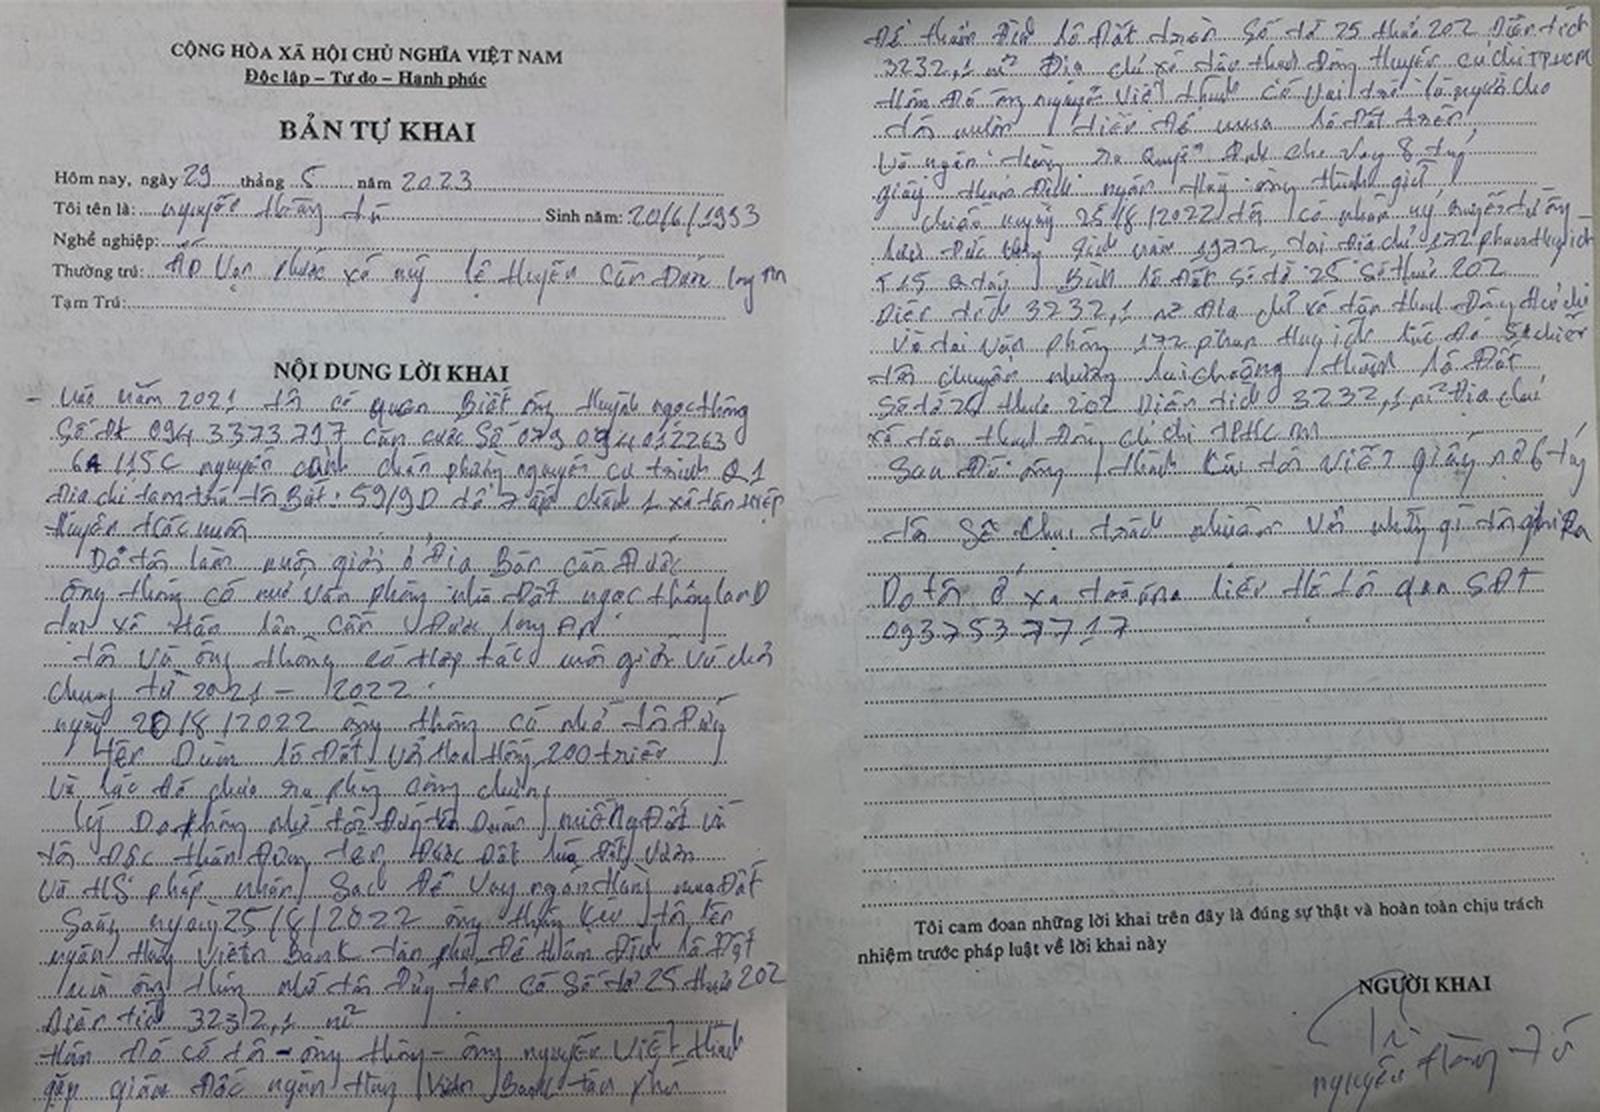 CỘNG HÒA XÃ HỘI CHỦ NGHĨA VIỆT NAM
Độc lập – Tự do – Hạnh phúc
BẢN TỰ KHAI
Hôm nay, ngày 29 tháng 5 năm 2023
Tôi tên là: nguyễn hoàng tú Sinh năm: 20/6/1993
Nghề nghiệp:
Thường trú: ẤP Vạn Phước xã mỹ lệ Huyện Cần Đước long An
Tạm Trú:
NỘI DUNG LỜI KHAI
- Vào năm 2021 tôi có quen Biết ông Huỳnh ngọc thông
Số Đt 094 3373797 căn cước Số 079 094 012263
115C nguyễn cảnh chân phường nguyễn cư trinh Q1
Địa chỉ tạm trú tôi Biết: 59/9D tổ 7 ấp chánh 1 xã tân hiệp
Huyện Hóc môn
Do tôi làm môi giới ở Địa Bàn cần Đước
ông thông có mở văn phòng nhà Đất ngọc thông lanD
tại xã tân lân Cần Đước long An
tôi và ông thông có Hợp tác môi giới và chơi
chung từ 2021 - 2022
ngày 20/8/2022 ông thông có nhờ tôi Đứng
tên Dùm lô Đất với Hoa Hồng 200 triệu
và lúc Đó chưa ra phòng công chứng
lý Do thông nhờ tôi Đứng tên Dùm miếng Đất vì
tôi Độc thân Đứng tên Được Đất lúa Đất vườn
và HS pháp nhân Sạch Để vay ngân Hàng mua Đất
Sáng ngày 25/8/2022 ông thông kêu tôi lên
ngân Hàng Vietin Bank tân phú Để thẩm Định lô Đất
mà ông thông nhờ tôi Đứng tên có Số tờ 25 thửa 202
Diện tích 3232,1 m²
Hôm Đó có tôi - ông thông - ông nguyễn Việt thành
gặp giám Đốc ngân Hàng Vietin Bank tân phú
Để thẩm Định lô Đất trên Số tờ 25 thửa 202 Diện tích
3232,1 m² Địa chỉ xã tân thạnh Đông Huyện củ chi TPHCM
Hôm Đó ông nguyễn Việt thành có vai trò là người cho
tôi mượn tiền Để mua lô Đất trên
Và ngân Hàng ra Quyết Định cho vay 8 tỷ
giấy thẩm Định ngân Hàng ông thành giữ
chiều ngày 25/8/2022 tôi có nhận uỷ quyền từ ông
Đức Sinh năm 1972 tại Địa chỉ 172 phan Huy ích
F15 Q tân Bình lô Đất Số tờ 25 Số thửa 202
Diện tích 3232,1 m² Địa chỉ xã tân thạnh Đông H củ chi
Và tại văn phòng 172 phan Huy ích lúc Đó 5h chiều
tôi chuyển nhượng lại cho ông thành lô Đất
Số tờ 25 thửa 202 Diện tích 3232,1 m² Địa chỉ
xã tân thạnh Đông củ chi TPHCM
Sau Đó ông thành kêu tôi viết giấy nợ 6 tỷ
tôi Sẽ chịu trách nhiệm với những gì tôi ghi Ra
Do tôi ở xa toà án liên Hệ tôi qua SĐT
0937537717
Tôi cam đoan những lời khai trên đây là đúng sự thật và hoàn toàn chịu trách
nhiệm trước pháp luật về lời khai này
NGƯỜI KHAI
nguyễn Hoàng Tú